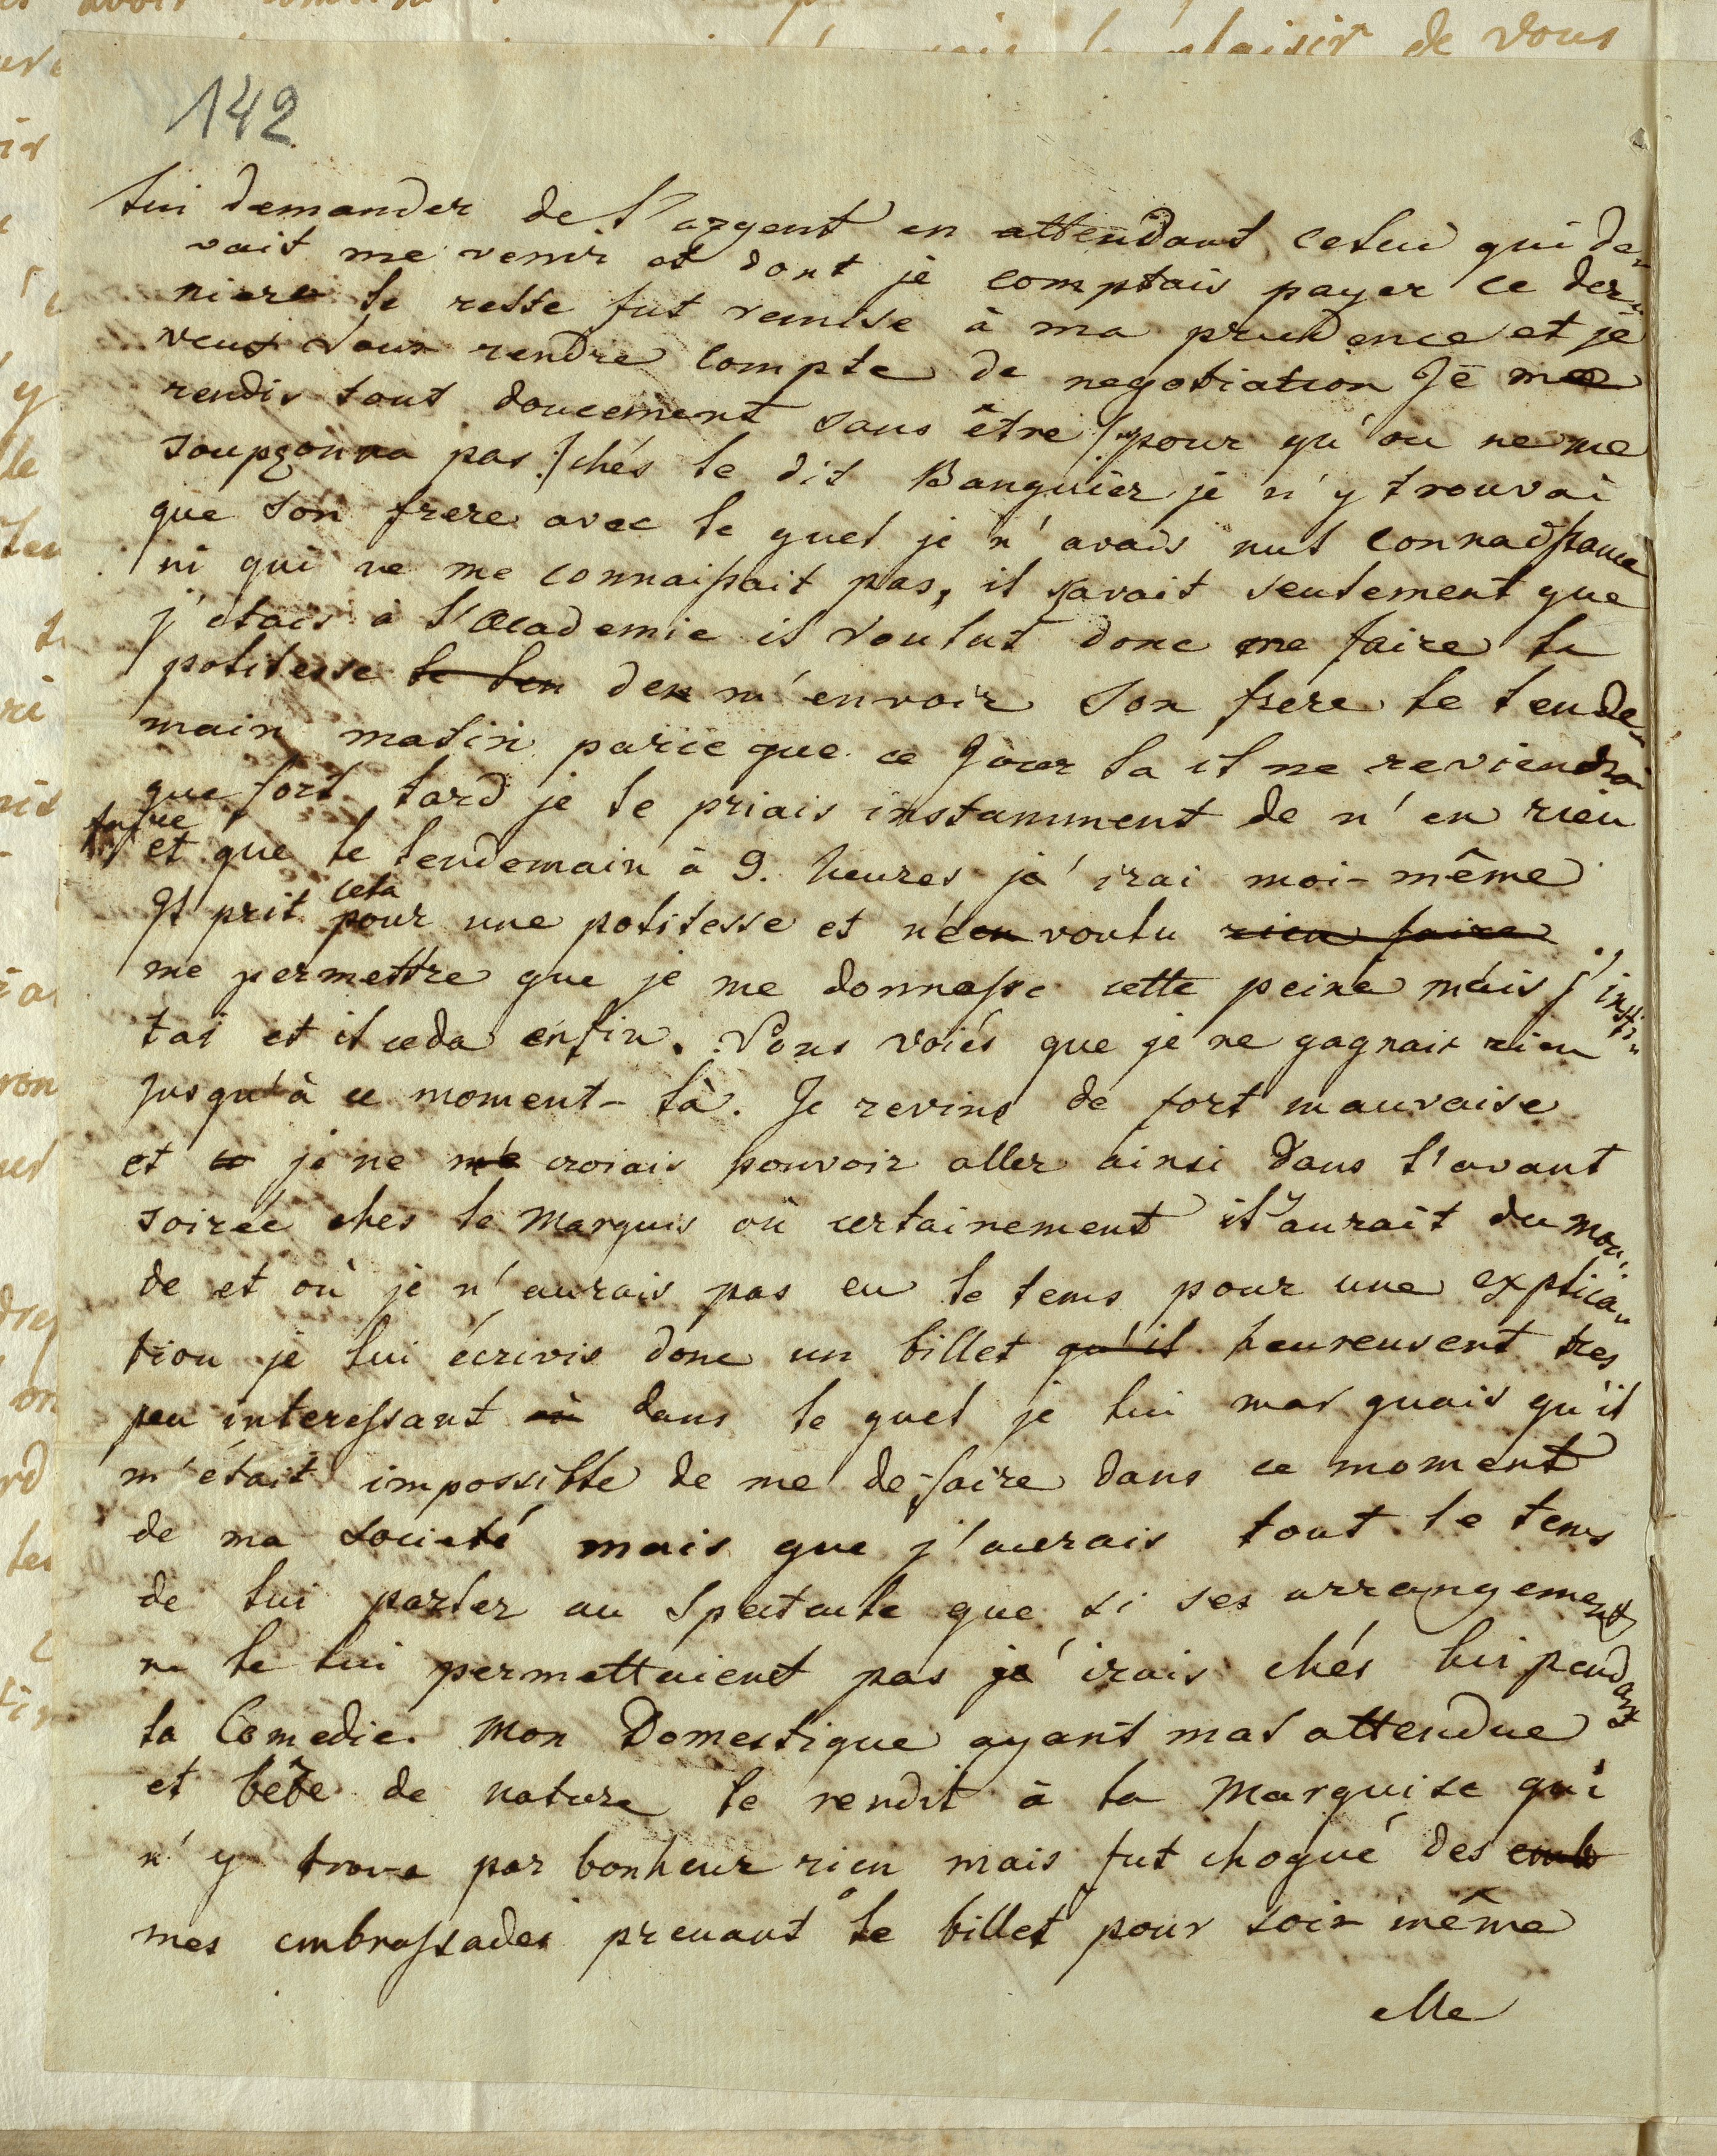 142
lui demander de l'argent en attendant celui qui de-
vait me venir et dont je comptais payer ce der-
niere le reste fut remise à ma prudence et je
veux vous rendre compte de negotiation Je me
rendis tout doucement sans être /: pour qu'on ne me
soupçonna pas :/ chés le dit Banquier je n'y trouvai
que son frere avec le quel je n'avais nul connaissance
ni qui ne me connaissait pas, il savait seulement que
j'etais à l'academie il voulut donc me faire la
politesse de m'envoir son frere le lende-
main matin parce que ce jour la il ne reviendrai
que fort tard je le priais instamment de n'en rien
faire et que le lendemain à 9. heures j'irai moi-même
Il prit cela pour une politesse et n'en voulu rien faire
me permettre que je me donnasse cette peine mais j'insis-
tai et il ceda enfin. Vous voiés que je ne gagnais rien
jusqu'à ce moment-là. Je revins de fort mauvaise
et je ne me croiais pouvoir aller ainsi dans l'avant
soirée ches le Marquis où certainement il y aurait du mon-
de et où je n'aurais pas eu le tems pour une explica-
tion je lui écrivis donc un billet qu'il heureusent tres
peu interessant où dans le quel je lui marquais qu'il
m'était impossible de me defaire dans ce moment
de ma societé mais que j'aurais tout le tems
de lui parler au Spectacle que si ses arrangements
ne le lui permettaient pas j'irais chés lui pendant
la Comedie. Mon Domestique ayant mal attendue
et bête de nature le rendit à la Marquise qui
n'y trova par bonheur rien mais fut choqué des emb
mes embrassades prenant le billet pour soir même
elle
plaisir de vous